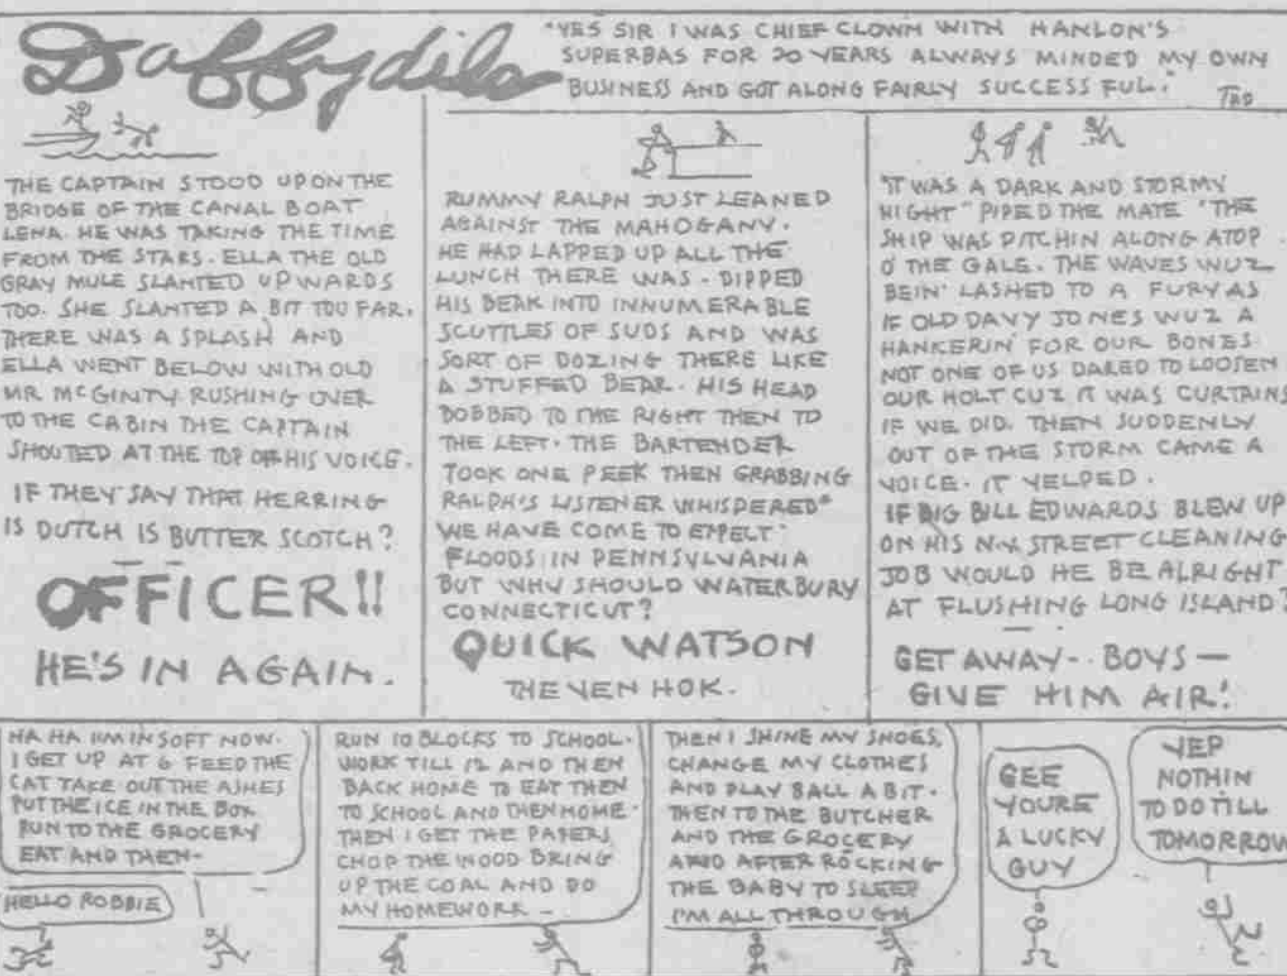 Daffydils
"YES SIR I WAS CHIEF CLOWN WITH HANLON'S
SUPERBAS FOR 20 YEARS ALWAYS MINDED MY OWN
BUSINESS AND GOT ALONG FAIRLY SUCCESSFUL."
TAD
THE CAPTAIN STOOD UPON THE
BRIDGE OF THE CANAL BOAT
LENA. HE WAS TAKING THE TIME
FROM THE STARS. ELLA THE OLD
GRAY MULE SLANTED UPWARDS
TOO. SHE SLANTED A BIT TOO FAR.
THERE WAS A SPLASH AND
ELLA WENT BELOW WITH OLD
MR McGINTY. RUSHING OVER
TO THE CABIN THE CAPTAIN
SHOUTED AT THE TOP OF HIS VOICE.
IF THEY SAY THAT HERRING
IS DUTCH IS BUTTER SCOTCH?
OFFICER!!
HE'S IN AGAIN.
RUMMY RALPH JUST LEANED
AGAINST THE MAHOGANY.
HE HAD LAPPED UP ALL THE
LUNCH THERE WAS. DIPPED
HIS BEAK INTO INNUMERABLE
SCUTTLES OF SUDS AND WAS
SORT OF DOZING THERE LIKE
A STUFFED BEAR. HIS HEAD
BOBBED TO THE RIGHT THEN TO
THE LEFT. THE BARTENDER
TOOK ONE PEEK THEN GRABBING
RALPH'S LISTENER WHISPERED"
WE HAVE COME TO EXPECT
FLOODS IN PENNSYLVANIA
BUT WHY SHOULD WATERBURY
CONNECTICUT?
QUICK WATSON
THE YEN HOK.
"IT WAS A DARK AND STORMY
NIGHT" PIPED THE MATE "THE
SHIP WAS PITCHIN ALONG ATOP
O' THE GALE. THE WAVES WUZ
BEIN' LASHED TO A FURY AS
IF OLD DAVY JONES WUZ A
HANKERIN' FOR OUR BONES.
NOT ONE OF US DARED TO LOOSEN
OUR HOLT CUZ IT WAS CURTAINS
IF WE DID. THEN SUDDENLY
OUT OF THE STORM CAME A
VOICE. IT YELPED.
IF BIG BILL EDWARDS BLEW UP
ON HIS N.Y. STREET CLEANING
JOB WOULD HE BE ALRIGHT
AT FLUSHING LONG ISLAND?
GET AWAY-- BOYS —
GIVE HIM AIR!
HA HA IIM IN SOFT NOW.
I GET UP AT 6 FEED THE
CAT TAKE OUT THE ASHES
PUT THE ICE IN THE BOX
RUN TO THE GROCERY
EAT AND THEN-
HELLO ROBBIE
RUN 10 BLOCKS TO SCHOOL.
WORK TILL 12 AND THEN
BACK HOME TO EAT THEN
TO SCHOOL AND THEN HOME.
THEN I GET THE PAPERS
CHOP THE WOOD BRING
UP THE COAL AND DO
MY HOMEWORK —
THEN I SHINE MY SHOES,
CHANGE MY CLOTHES
AND PLAY BALL A BIT.
THEN TO THE BUTCHER
AND THE GROCERY
AND AFTER ROCKING
THE BABY TO SLEEP
I'M ALL THROUGH
GEE
YOURE
A LUCKY
GUY
YEP
NOTHIN
TO DO TILL
TOMORROW